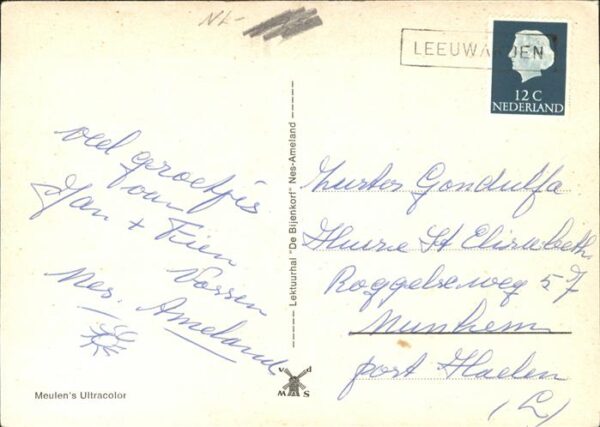 NL-
LEEUWARDEN
12 C
NEDERLAND
veel groetjes
van
Jan + Fien
Vossen
Nes. Ameland
Lektuurhal "De Bijenkorf" Nes-Ameland
Zuster Gondulfa
Huize St Elisabeth
Roggelseweg 57
Nunhem
post Haelen
(L)
v d
M S
Meulen's Ultracolor